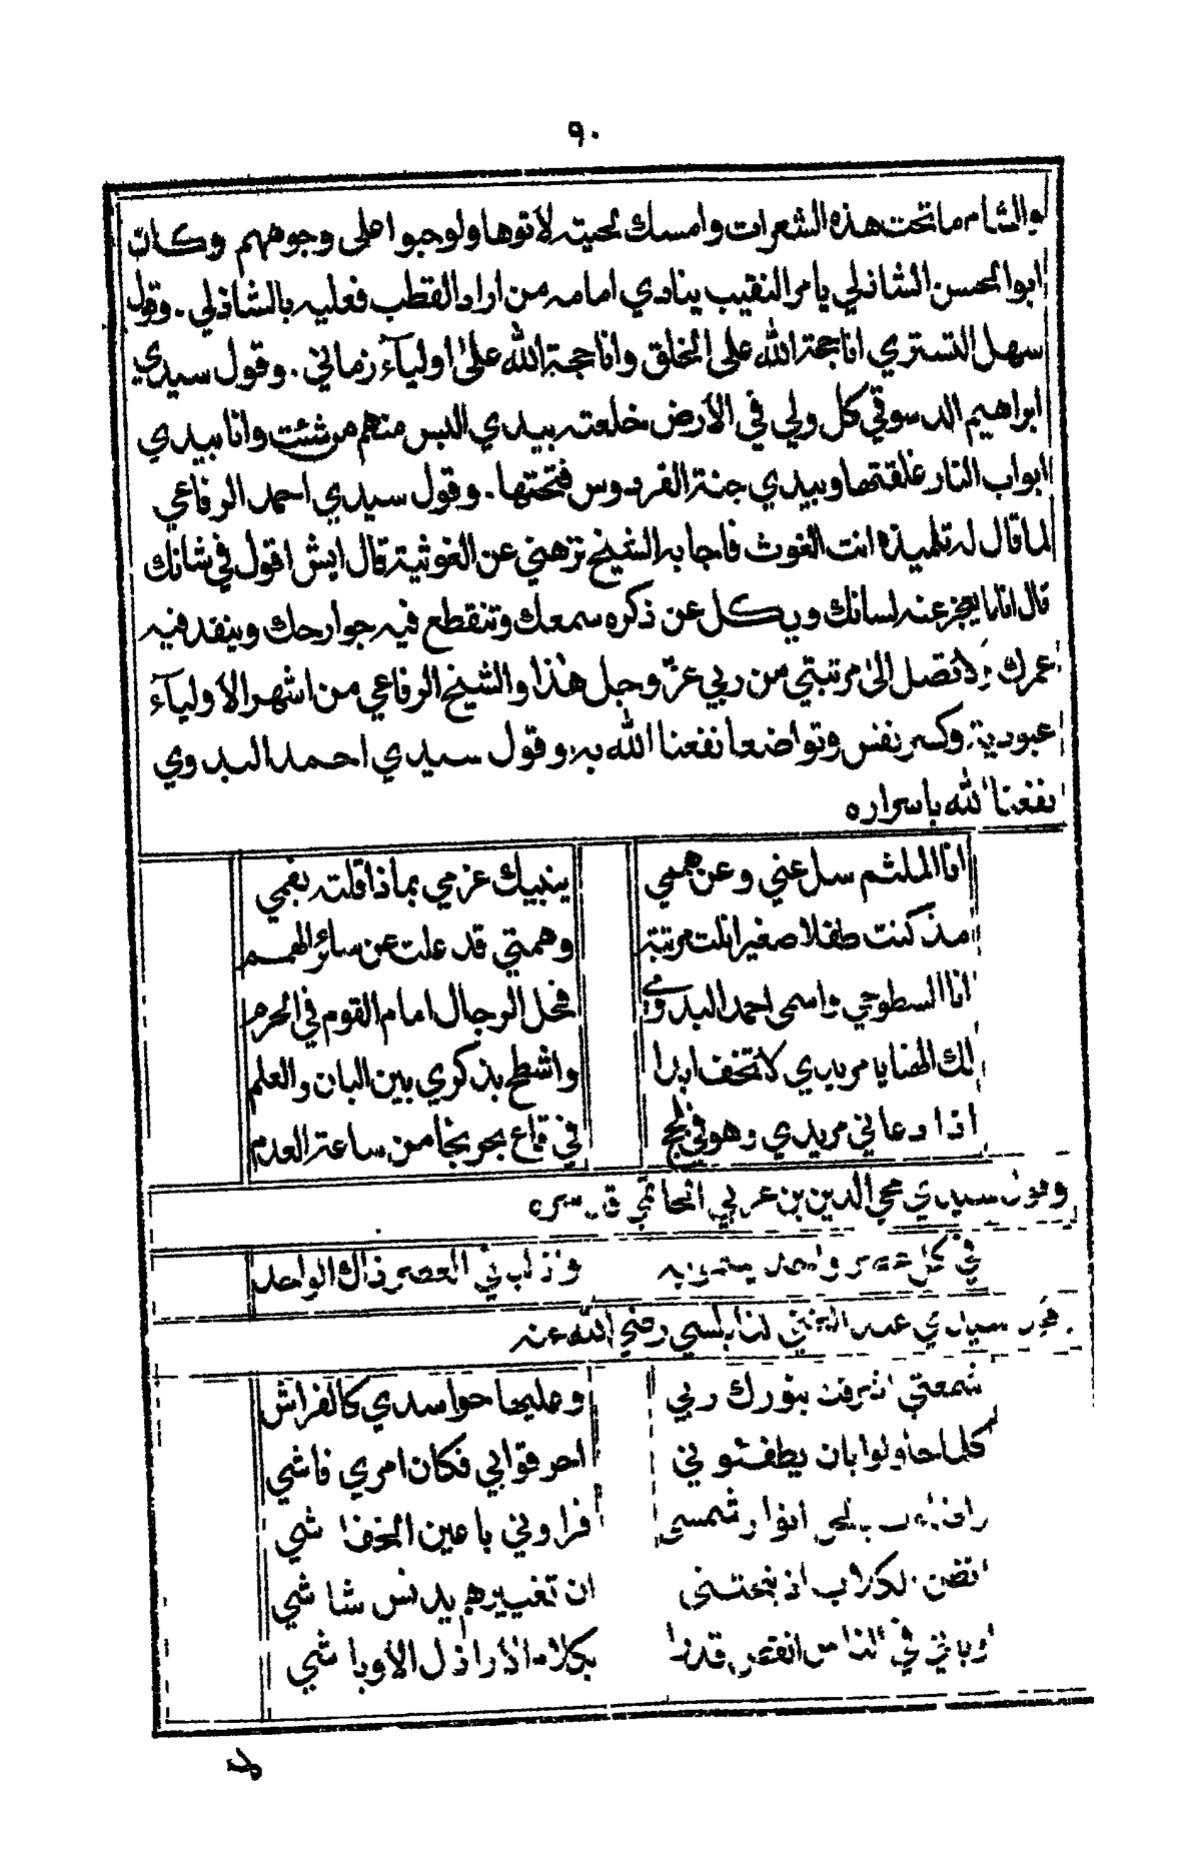 ٩٠
والشام ما تحت هذه الشعرات وامسك لحيته لأتوها ولو حبوا على وجوههم وكان
ابو الحسن الشاذلي يامر النقيب ينادي امامه من اراد القطب فعليه بالشاذلي . وقول
سهل التستري انا حجة الله على الخلق وانا حجة الله على اولياء زماني . وقول سيدي
ابراهيم الدسوقي كل ولي في الأرض خلعته بيدي البس منهم من شئت وانا بيدي
ابواب النار غلقتها وبيدي جنة الفردوس فتحتها . وقول سيدي احمد الرفاعي
لما قال له تلميذه انت الغوث فاجابه الشيخ نزهني عن الغوثية قال ايش اقول في شانك
قال انا ما يعجز عنه لسانك ويكل عن ذكره سمعك وتنقطع فيه جوارحك وينفد فيه
عمرك ولا تصل الى مرتبتي من ربي عز وجل هذا والشيخ الرفاعي من اشهر الأولياء
عبودية وكسر نفس وتواضعا نفعنا الله به وقول سيدي احمد البدوي
نفعنا الله باسراره
انا الملثم سل عني وعن هممي ينبيك عزمي بماذا قلته بفمي
مذ كنت طفلا صغيرا نلت مرتبة وهمتي قد علت عن سائر الهمم
انا السطوحي واسمي احمد البدوي فحل الرجال امام القوم في الحرم
لك الهنا يا مريدي لا تخف ابدا واشطح بذكري بين البان والعلم
اذا دعاني مريدي وهو في لجج في قاع بحر نجا من ساعة العدم
وقول سيدي محي الدين بن عربي الحاتمي سره
في كل عصر واحد يسمو به وانا لباقي العصر ذاك الواحد
سيدي عبد الغني النابلسي رضي الله عنه
شمعتي اشرقت بنورك ربي وعليها حواسدي كالفراش
كلما حاولوا بان يطفئوني احرقوا بي فكان امري فاشي
انوار شمسي فراوني باعين الخفاش
الكلاب اذ نبحتني ان تغييرهم يدنس شاشي
في الناس انقص قدرا بكلام الأراذل الأوباش